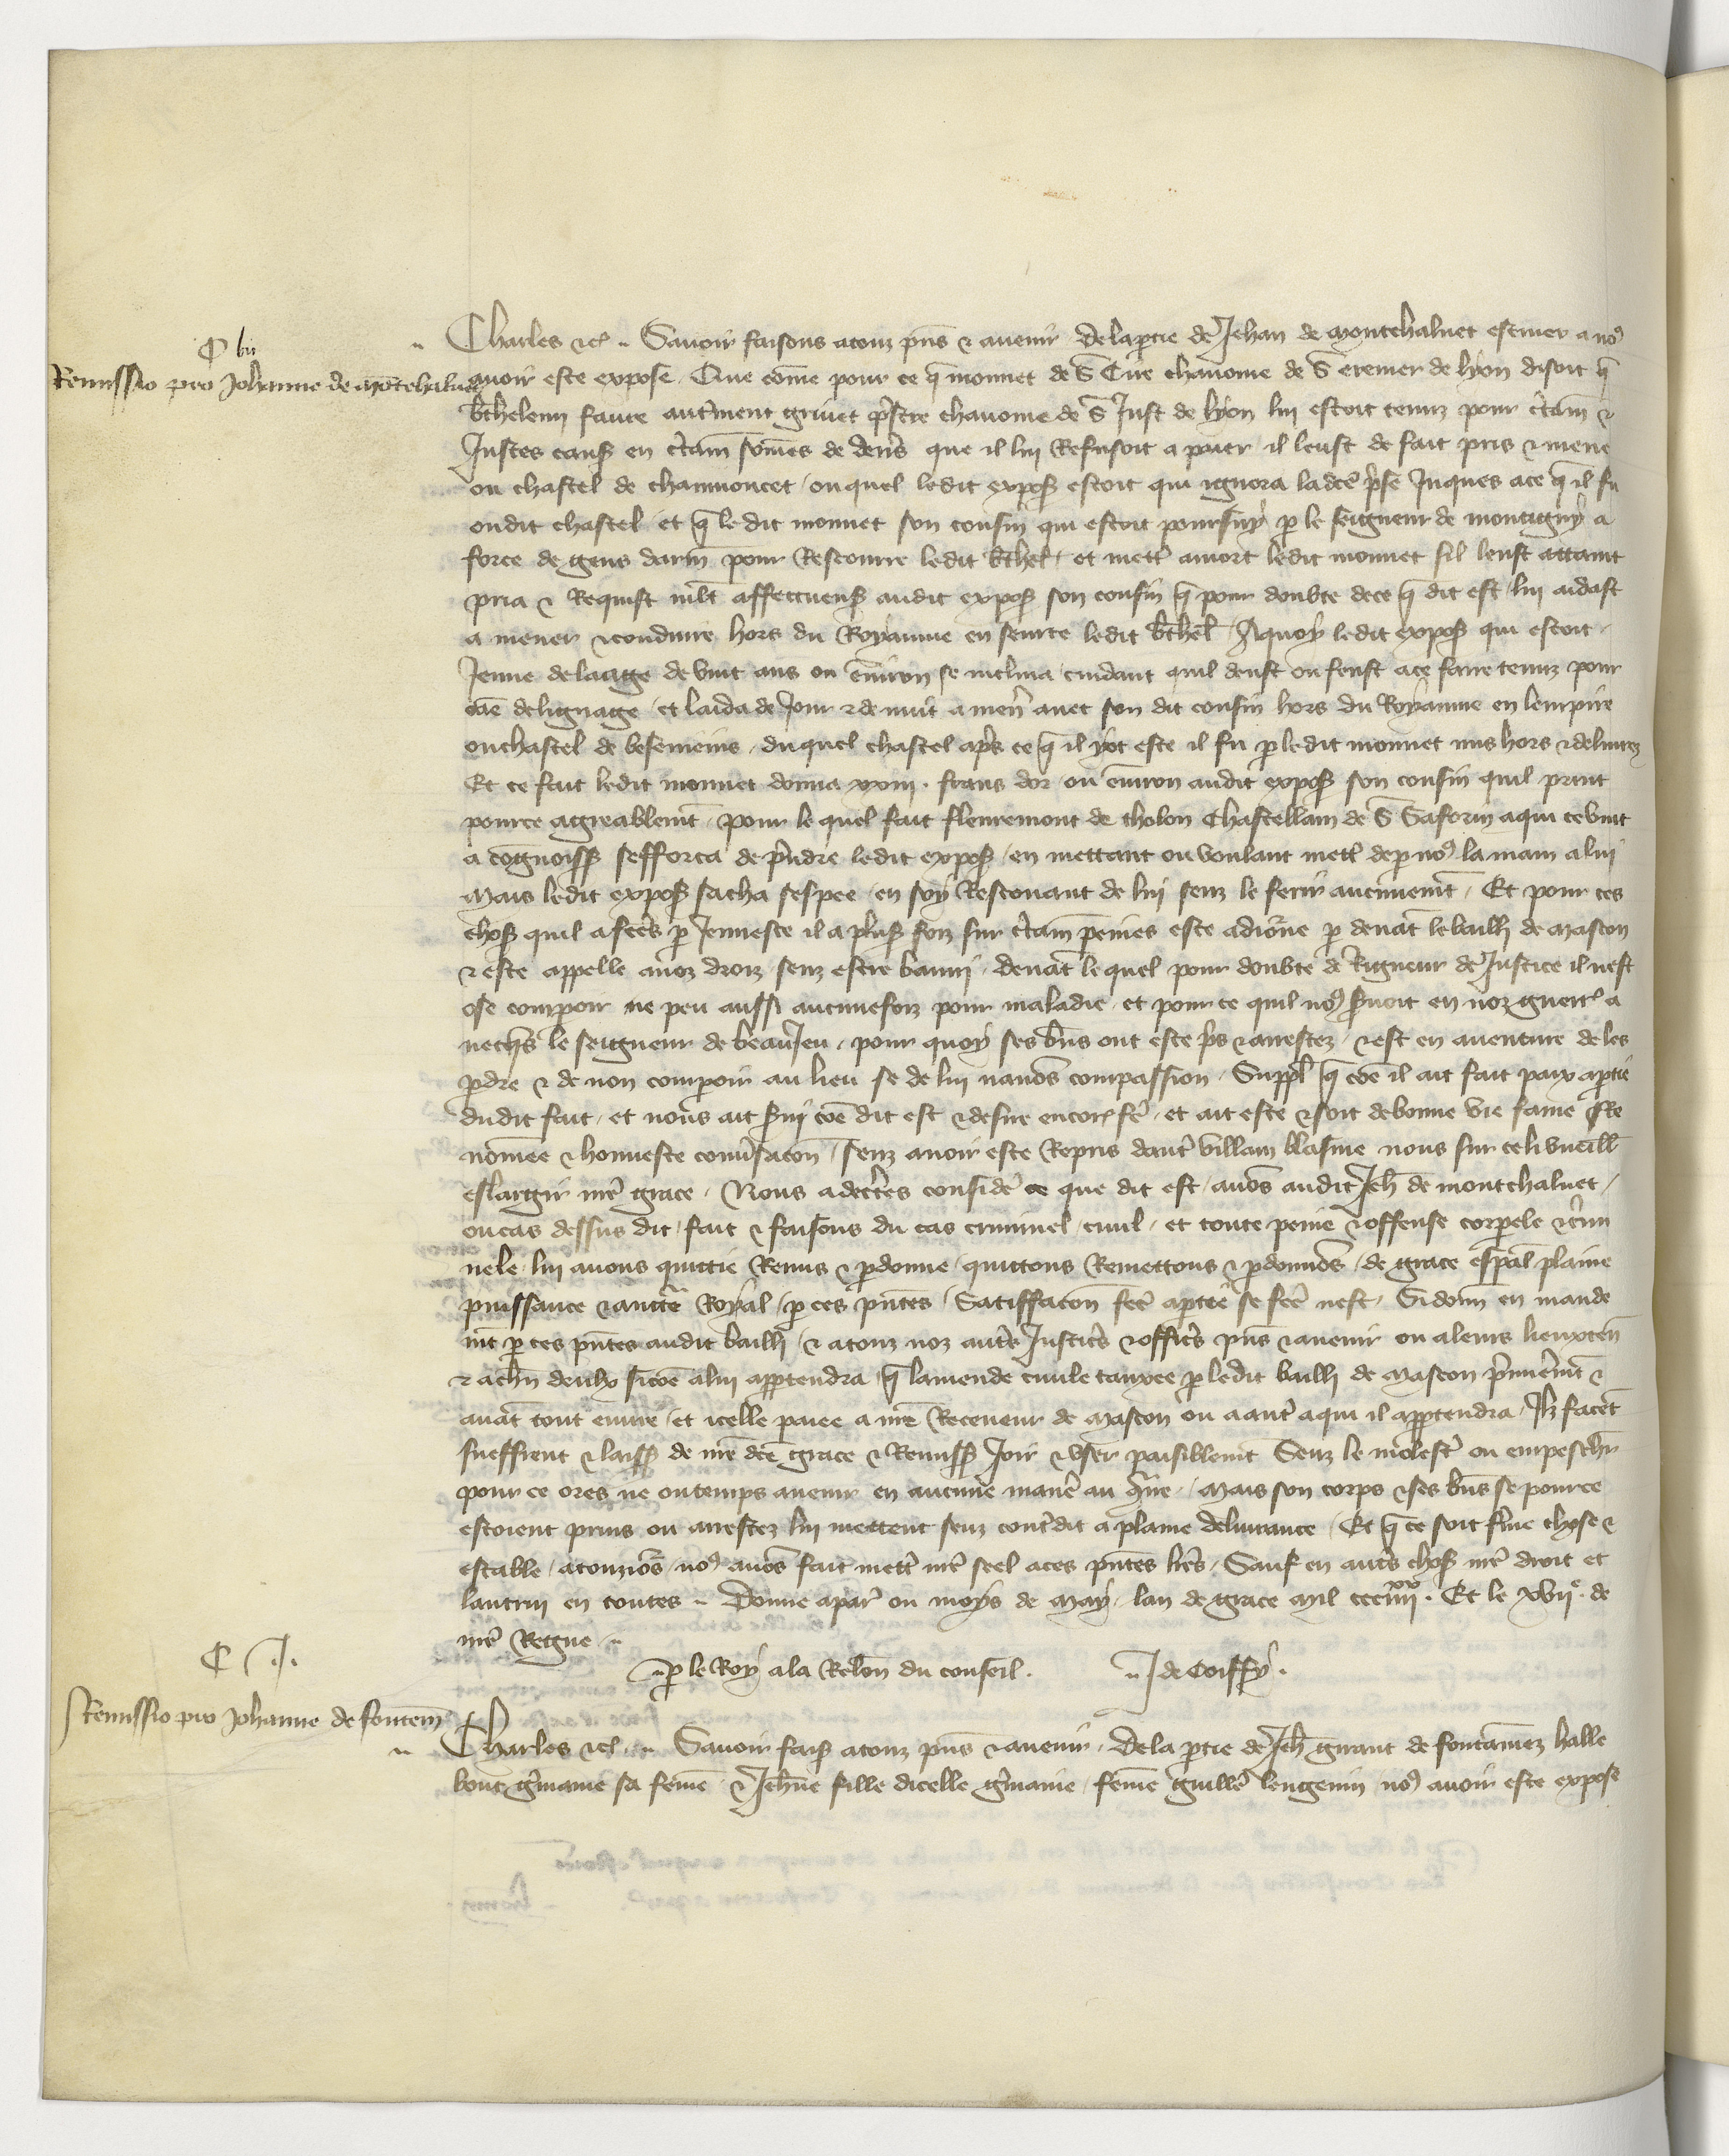 ¶ vii
Remissio pro Johanne de mōtchalvet
Charles etc. Savoir faisons a touz pns̄ et avenir De la ptie de Jehan de montchalvet escuier a no9
avoir este expose. Que cōme pour ce q̄ monnet de S Cire chanoine de S de lyon disoit q̄
b̄thelemi faure autrment grivet pr̄stre chanoine de S Just de lyon lui estoit tenuz pour c̄tain et
Justes caus en c̄tain sōmes de den̄s que il lui Refusoit a paier il leust de fait pris et mene
ou chastel de channoncet ou quel ledit expos estoit qui ignora lad̄ce pr̄se Juques a ce q̄ il fu
oudit chastel et q̄ ledit monnet son cousin qui estoit poursuy p le seigneur de montaigny a
force de gens darm̄ pour Rescourre ledit b̄thel et mett̄ a mort ledit monnet sil leust attaint
pria et Requist ml̄t affectueus audit expos son cousin q̄ pour doubte de ce q̄ dit est lui aidast
a mener et conduire hors du Royaume en seurte ledit b̄thel A quoy ledit expos qui estoit
Jeune de laage de vint ans ou ēviron se inclina cuidant quil deust ou feust a ce faire tenuz pour
cāe de lignage et laida de Jour et de nuit a men̄ avec son dit cousin hors du Royaume en lempire
ou chastel de duquel chastel ap̄s ce q̄ il yot este il fu p ledit monnet mis hors et delivrez
Et ce fait ledit monnet donna xxiii. frans dor ou ēviron audit expos son cousin quil print
pource aggreablemt̄ pour le quel fait fleuremont de tholon Chastellain de S Saforin a qui ce vint
a cōgnoiss sefforca de pr̄ndre ledit expos en mettant ou voulant mett̄ de p no9 la main a lui
Mais ledit expos sacha sespee en soy Rescouant de lui senz le ferir aucunemt̄ Et pour ces
chos quil a fc̄es p Jeunesce il a pl̄us foiz sur c̄tain pēines este adiōrne p devāt le bailli de mascon
et este appelle a noz droiz senz estre banni Devāt le quel pour doubte de Rigueur de Justice il nest
ose compoir ne peu aussi aucunefoiz pour maladie et pour ce quil no9 s̄voit en noz guerr̄ a
nech̄s le seigneur de beauJeu pour quoy ses b̄ns ont este p̄s et arrestez et est en aventure de les
pdre et de non compoir au lieu se de lui navōs compassion Suppl̄ q̄ cōe il ait fait paix a ptie
dudit fait et nous ait s̄vi cōe dit est et desire encor̄ fē et ait este et soit de bonne vie fame Re
nōmee et honneste conv̄sacōn senz avoir este Repris daut̄ villain blasme nous sur ce li vueill̄
eslargir nr̄e grace Nous adecc̄tes consid̄e ce que dit est avōs audit Jeh̄ de montchalvet
ou cas dessus dit fait et faisons du cas criminel civil et toute peine et offense corpele et c̄imi
nele lui avons quittie Remis et pdonne quittons Remettons et pdonnōs de grace esp̄al plaine
puissance et auct̄e Royal p ces pn̄tes Satisffacōn fc̄e a ptie se fc̄e nest Si donn̄ en mande
mt̄ p ces pn̄tes audit bailli et a touz noz aut̄s Justic̄rs et offic̄rs pn̄s et avenir ou a leurs lieuxten̄
et a ch̄n deulx si cōe a lui apptendra q̄ lamende civile tauxee p ledit bailli de Mascon pr̄mie̅rmt̄ et
avāt tout euvre et icelle paiee a nr̄e Receveur de Mascon ou a aut̄ a qui il apptendra Ilz facēt
sueffrent et laiss de nr̄e dc̄e grace et Remiss Joir et user paisiblemt̄ Senz le molest̄ ou empeschr̄
pour ce ores ne ou temps avenir en aucune manie̅ au 9tr̄re Mais son corps et ses b̄ns se pource
estoient prins ou arrestez lui mettent senz cont̄dit a plaine delivrance Et q̄ ce soit f̄me chose et
estable a touzjōs no9 avōs fait mett̄ nr̄e seel a ces pn̄tes lr̄es Sauf en aut̄s chos nr̄e droit et
lautrui en toutes Donne a par̄ ou moys de May lan de grace Mil ccc iiiixx. Et le xviie. de
nr̄e Regne
p le Roy a la Relōn du conseil. J de Coiffy.
¶ .J.
Remissio pro Johanne de fontem̄
Charles etc. Savoir fais a touz pns̄ et avenir De la ptie de Jeh̄ girart de fontāinez halle
bout ḡmaine sa fēme et Jeh̄ne fille dicelle ḡmaine fēme guill̄e lengenin no9 avoir este expose